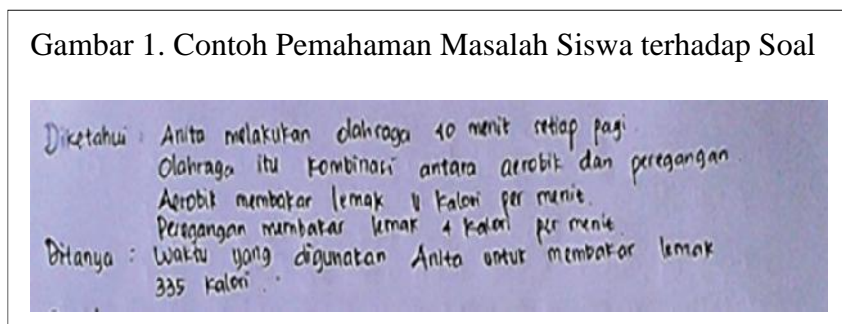 Gambar 1. Contoh Pemahaman Masalah Siswa terhadap Soal
Diketahui : Anita melakukan olahraga 40 menit setiap pagi.
Olahraga itu kombinasi antara aerobik dan peregangan.
Aerobik membakar lemak 11 kalori per menit.
Peregangan membakar lemak 4 kalori per menit.
Ditanya : Waktu yang digunakan Anita untuk membakar lemak
335 kalori.